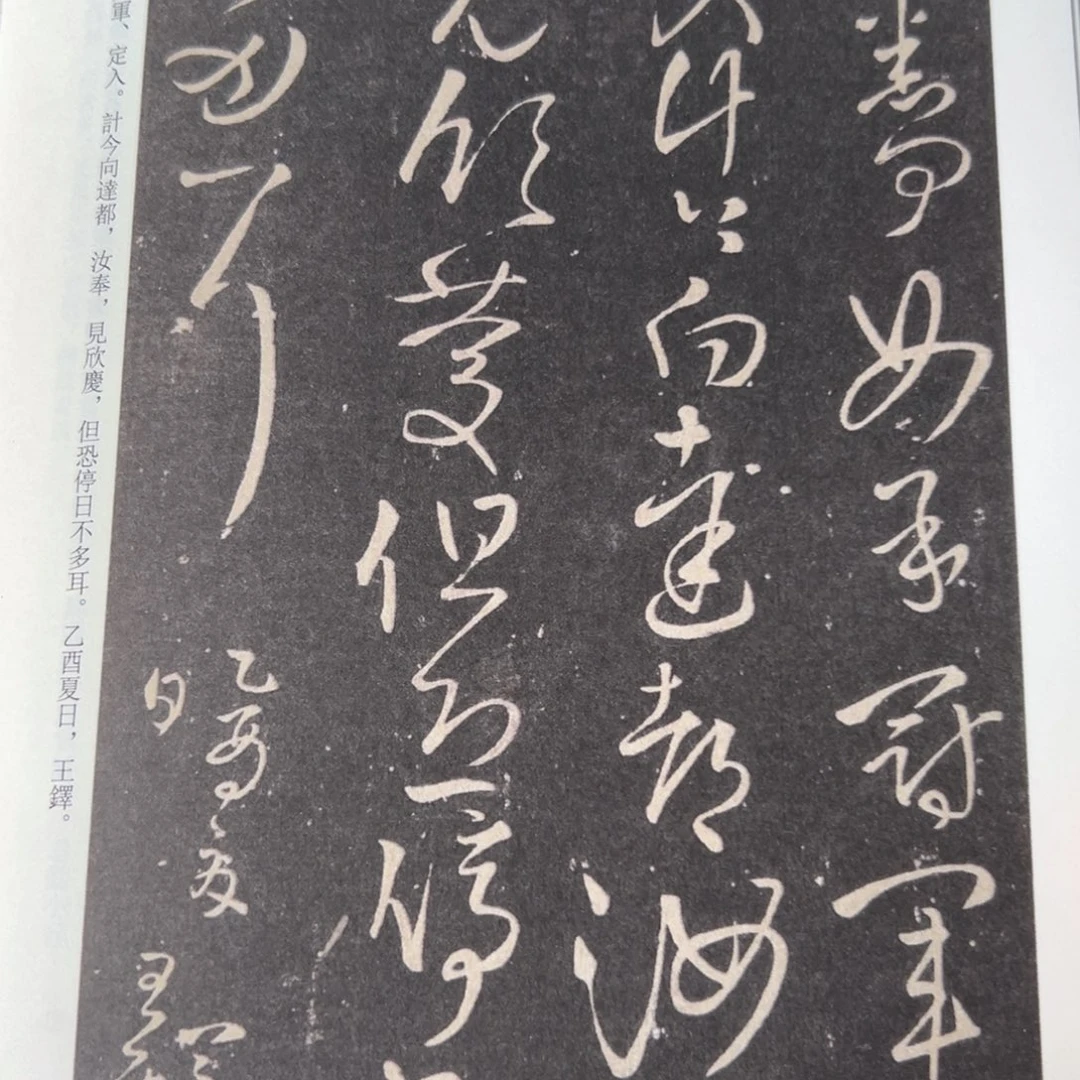 何如承冠軍
入計今向達都汝
見欣慶但恐停
多耳
乙酉夏
日王鐸
軍、定入。計今向達都，汝奉，見欣慶，但恐停日不多耳。乙酉夏日，王鐸。